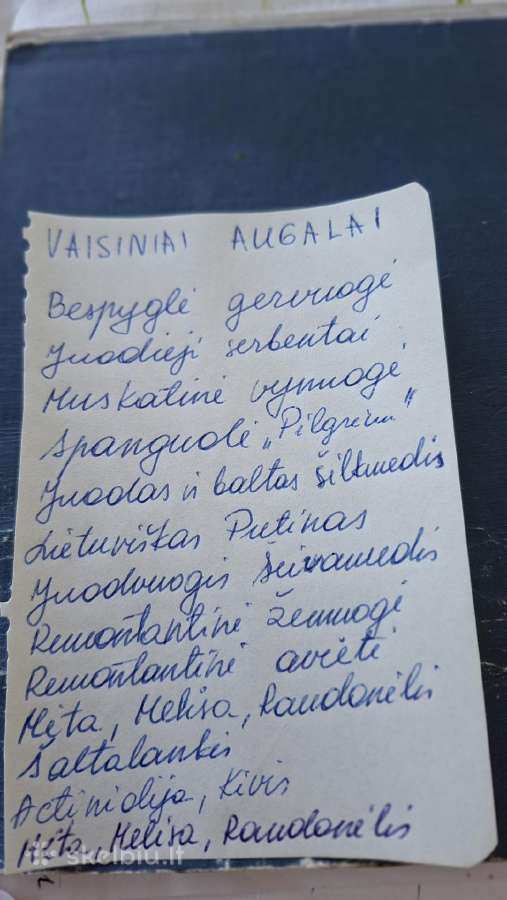 VAISINIAI AUGALAI
Bespyglė gervuogė
Juodieji serbentai
Muskatinė vynuogė
Spanguolė „Pilgrim"
Juodas ir baltas šilkmedis
Lietuviškas Putinas
Juoduogis šeivamedis
Remontantinė žemuogė
Remontantinė avietė
Mėta, Melisa, Raudonėlis
Šaltalankis
Actinidija, Kivis
Mėta, Melisa, Raudonėlis
skelbiu.lt